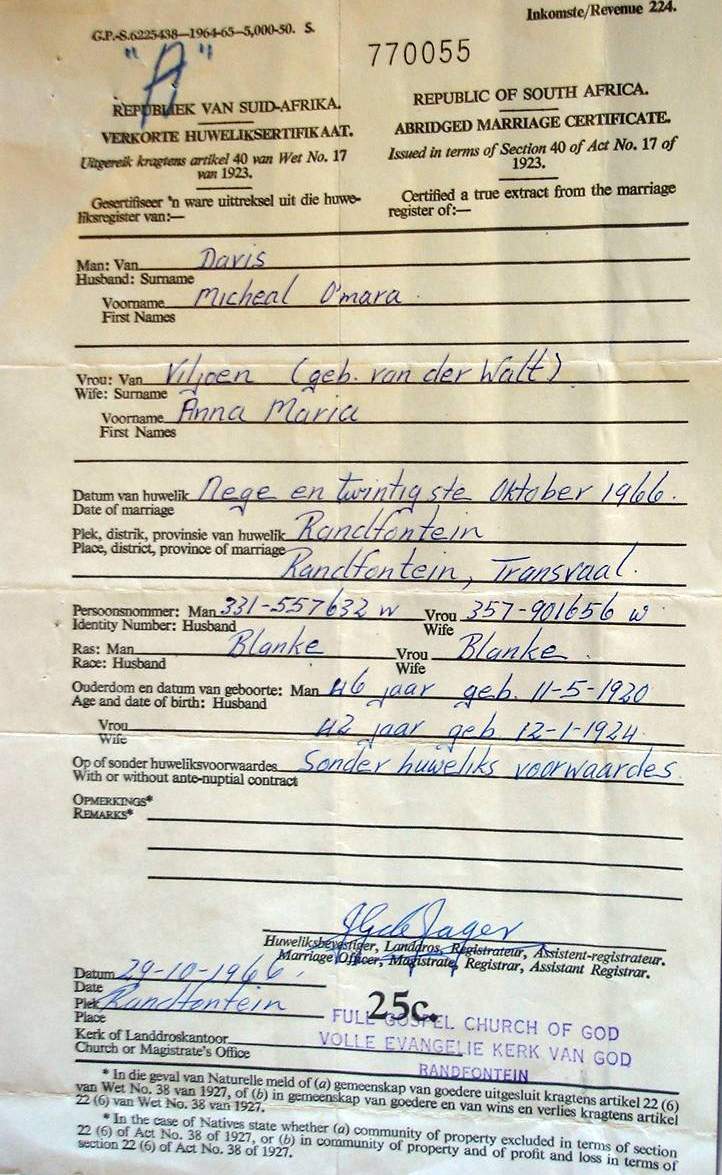 Inkomste/Revenue 224.
G.P.-S.6225438—1964-65—5,000-50. S.
"A"
770055
REPUBLIEK VAN SUID-AFRIKA.
VERKORTE HUWELIKSERTIFIKAAT.
Uitgereik kragtens artikel 40 van Wet No. 17
van 1923.
Gesertifiseer 'n ware uittreksel uit die huwe-
liksregister van:—
REPUBLIC OF SOUTH AFRICA.
ABRIDGED MARRIAGE CERTIFICATE.
Issued in terms of Section 40 of Act No. 17 of
1923.
Certified a true extract from the marriage
register of:—
Man: Van Davis
Husband: Surname
Voorname Micheal O'mara.
First Names
Vrou: Van Viljoen (geb. van der Walt)
Wife: Surname
Voorname Anna Maria
First Names
Datum van huwelik Nege en twintigste Oktober 1966.
Date of marriage
Plek, distrik, provinsie van huwelik Randfontein
Place, district, province of marriage
Randfontein, Transvaal.
Persoonsnommer: Man 331-557632 W Vrou 357-901656 W
Identity Number: Husband Wife
Ras: Man Blanke Vrou Blanke.
Race: Husband Wife
Ouderdom en datum van geboorte: Man 46 jaar geb. 11-5-1920
Age and date of birth: Husband
Vrou 42 jaar geb 12-1-1924.
Wife
Op of sonder huweliksvoorwaardes Sonder huweliks voorwaardes.
With or without ante-nuptial contract
OPMERKINGS*
REMARKS*
Huweliksbevestiger, Landdros, Registrateur, Assistent-registrateur.
Marriage Officer, Magistrate, Registrar, Assistant Registrar.
Datum 29-10-1966.
Date
Plek Randfontein
Place
25c.
Kerk of Landdroskantoor
Church or Magistrate's Office
FULL GOSPEL CHURCH OF GOD
VOLLE EVANGELIE KERK VAN GOD
RANDFONTEIN
* In die geval van Naturelle meld of (a) gemeenskap van goedere uitgesluit kragtens artikel 22 (6)
van Wet No. 38 van 1927, of (b) in gemeenskap van goedere en van wins en verlies kragtens artikel
22 (6) van Wet No. 38 van 1927.
* In the case of Natives state whether (a) community of property excluded in terms of section
22 (6) of Act No. 38 of 1927, or (b) in community of property and of profit and loss in terms of
section 22 (6) of Act No. 38 of 1927.